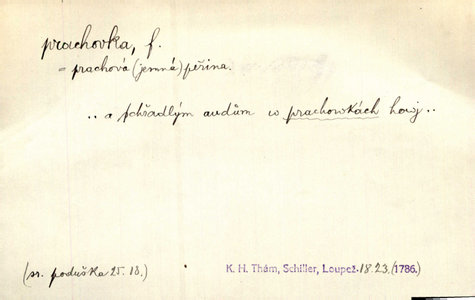 prachovka, f.
= prachová (jemná) peřina.
.. a pohřadlým audům w prachowkách howj ..
(sr. poduška 25. 18.) K. H. Thám, Schiller, Loupež. 18.23. (1786.)